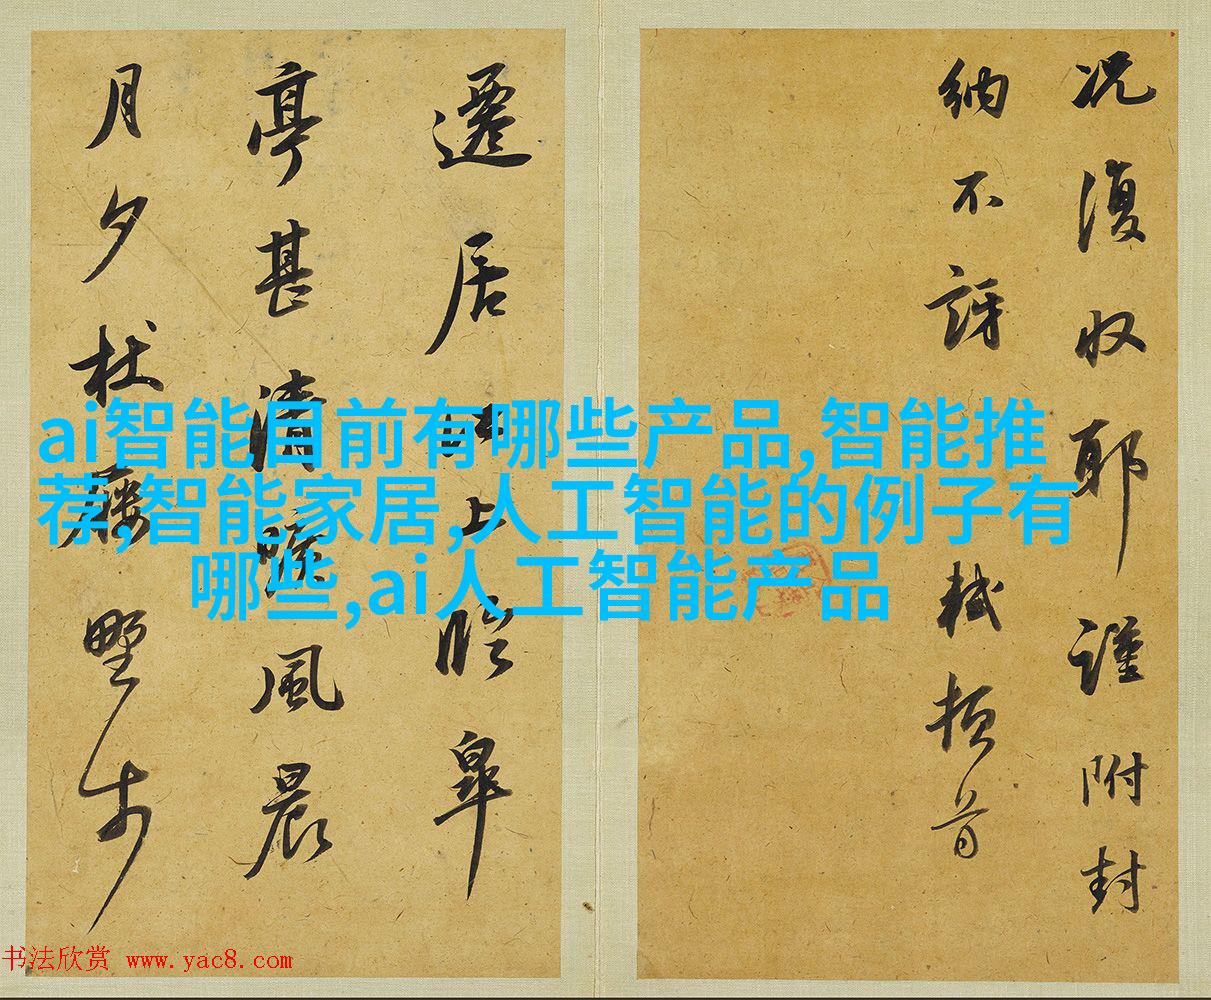 况復收耶謹附封
納不訝軾頓首
遷居江上臨皋
亭甚清曠風晨
月夕杖屨野步
ai智能目前有哪些产品,智能推
荐,智能家居,人工智能的例子有
哪些,ai人工智能产品
书法欣赏 www.yac8.com